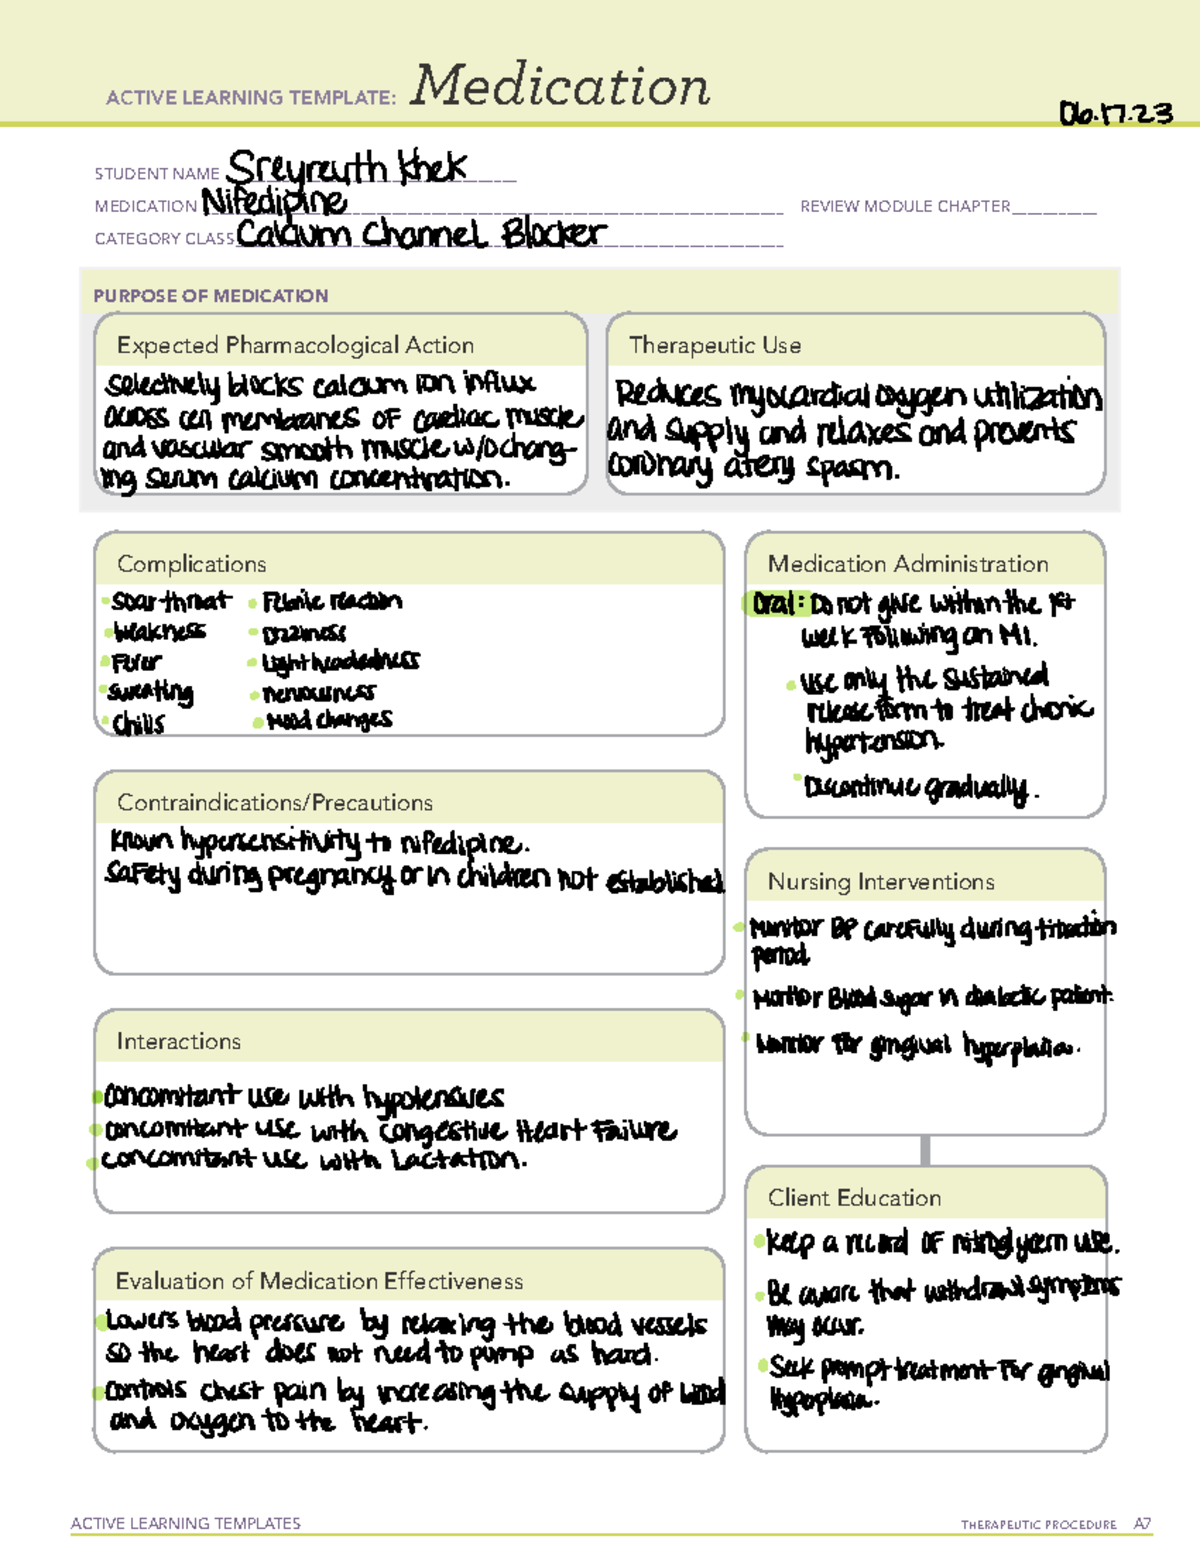 ACTIVE LEARNING TEMPLATE: Medication
06.17.23
STUDENT NAME Sreyreuth Khek
MEDICATION Nifedipine REVIEW MODULE CHAPTER
CATEGORY CLASS Calcium Channel Blocker
PURPOSE OF MEDICATION
Expected Pharmacological Action
Selectively blocks calcium ion influx
across cell membranes of cardiac muscle
and vascular smooth muscle w/o chang-
ing serum calcium concentration.
Therapeutic Use
Reduces myocardial oxygen utilization
and supply and relaxes and prevents
coronary atery spasm.
Complications
• Soar throat • Febrile reaction
• Weakness • Dizziness
• Fever • Lightheadedness
• Sweating • nervousness
• Chills • Mood changes
Medication Administration
Oral: Do not give within the 1st
week following an MI.
• Use only the sustained
release form to treat chronic
hypertension.
• Discontinue gradually.
Contraindications/Precautions
Known hypersensitivity to nifedipine.
Safety during pregnancy or in children not established
Nursing Interventions
• Monitor BP carefully during titration
period
• Monitor Blood sugar in diabetic patient.
• Monitor for gingival hyperplasia.
Interactions
• Concomitant use with hypotensives
• Concomitant use with Congestive Heart Failure
• Concomitant use with Lactation.
Client Education
• Keep a record of nitroglycerin use.
• Be aware that withdrawal symptoms
may occur.
• Seek prompt treatment for gingival
Evaluation of Medication Effectiveness
• Lowers blood pressure by relaxing the blood vessels
so the heart does not need to pump as hard.
• Controls chest pain by increasing the supply of blood
and oxygen to the heart.
ACTIVE LEARNING TEMPLATES
THERAPEUTIC PROCEDURE A7